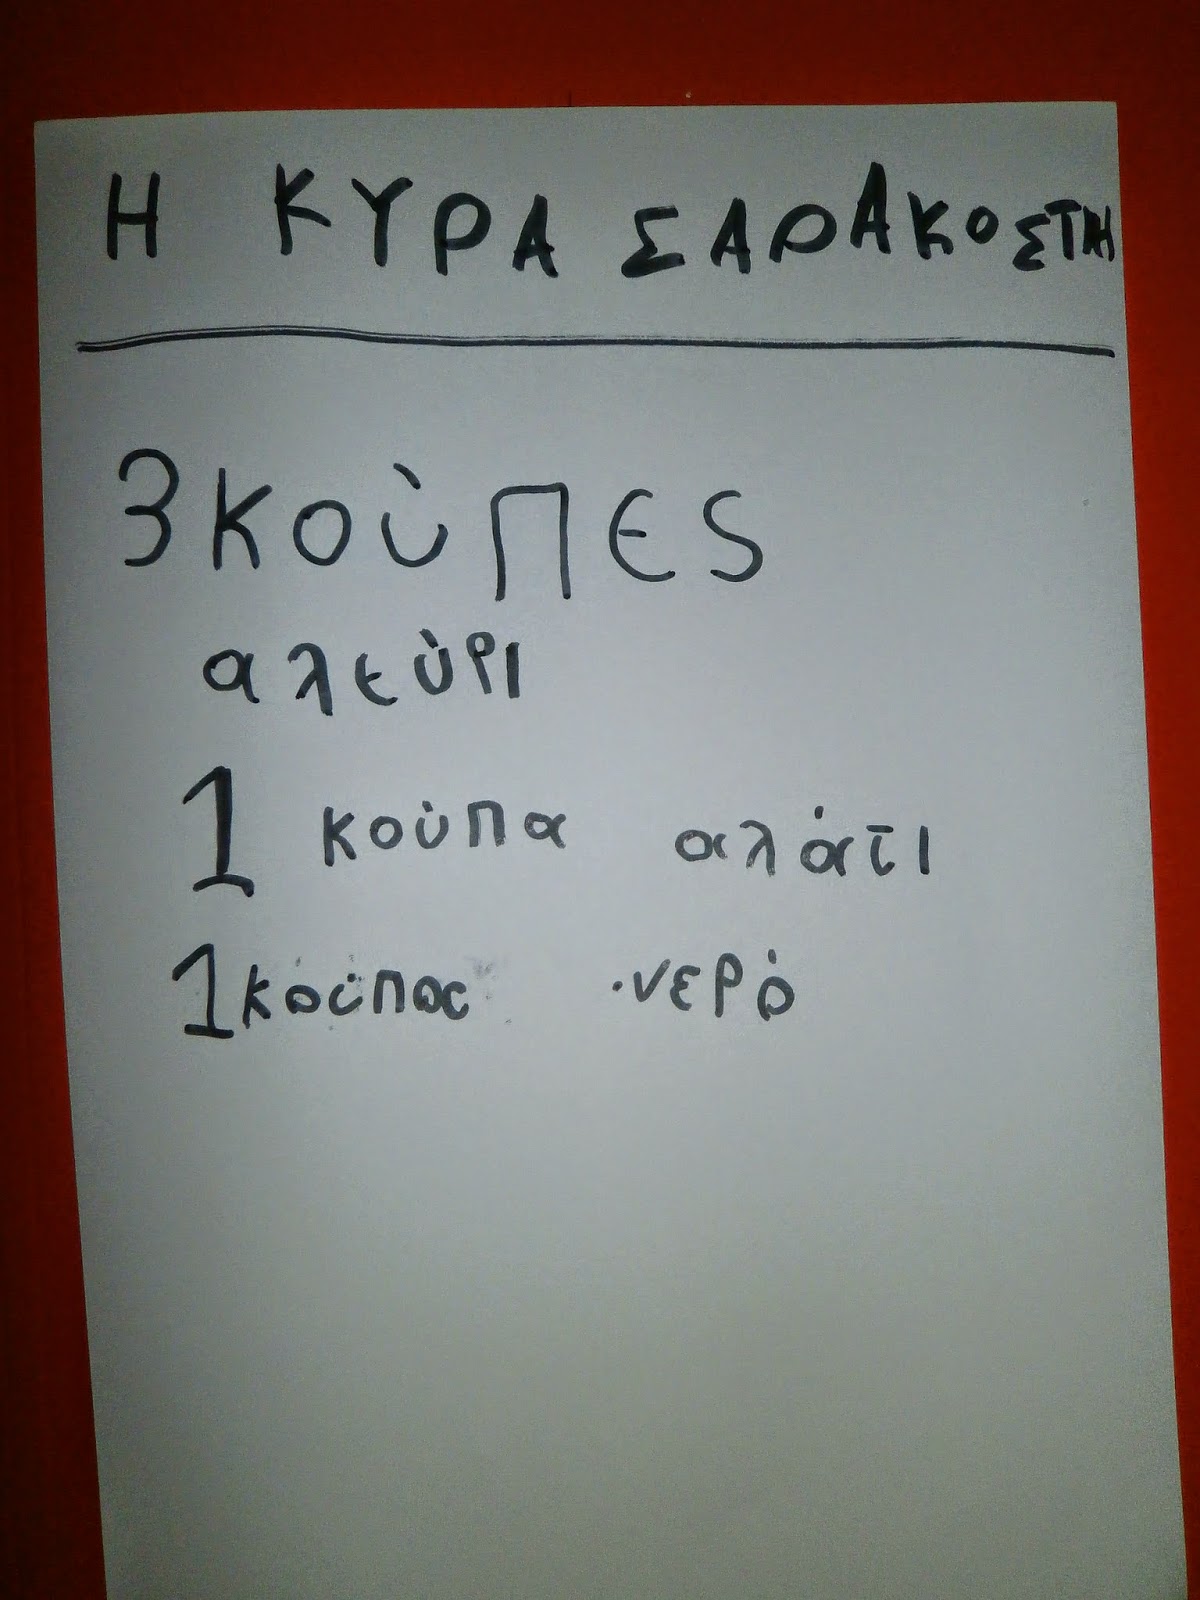 Η ΚΥΡΑ ΣΑΡΑΚΟΣΤΗ
3 κούπες
αλεύρι
1 κούπα αλάτι
1 κούπα νερό